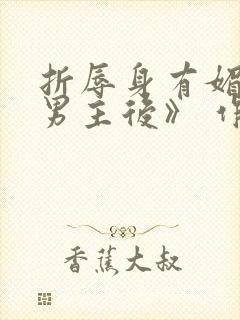 折辱身有媚
男主後》 作
香蕉大叔